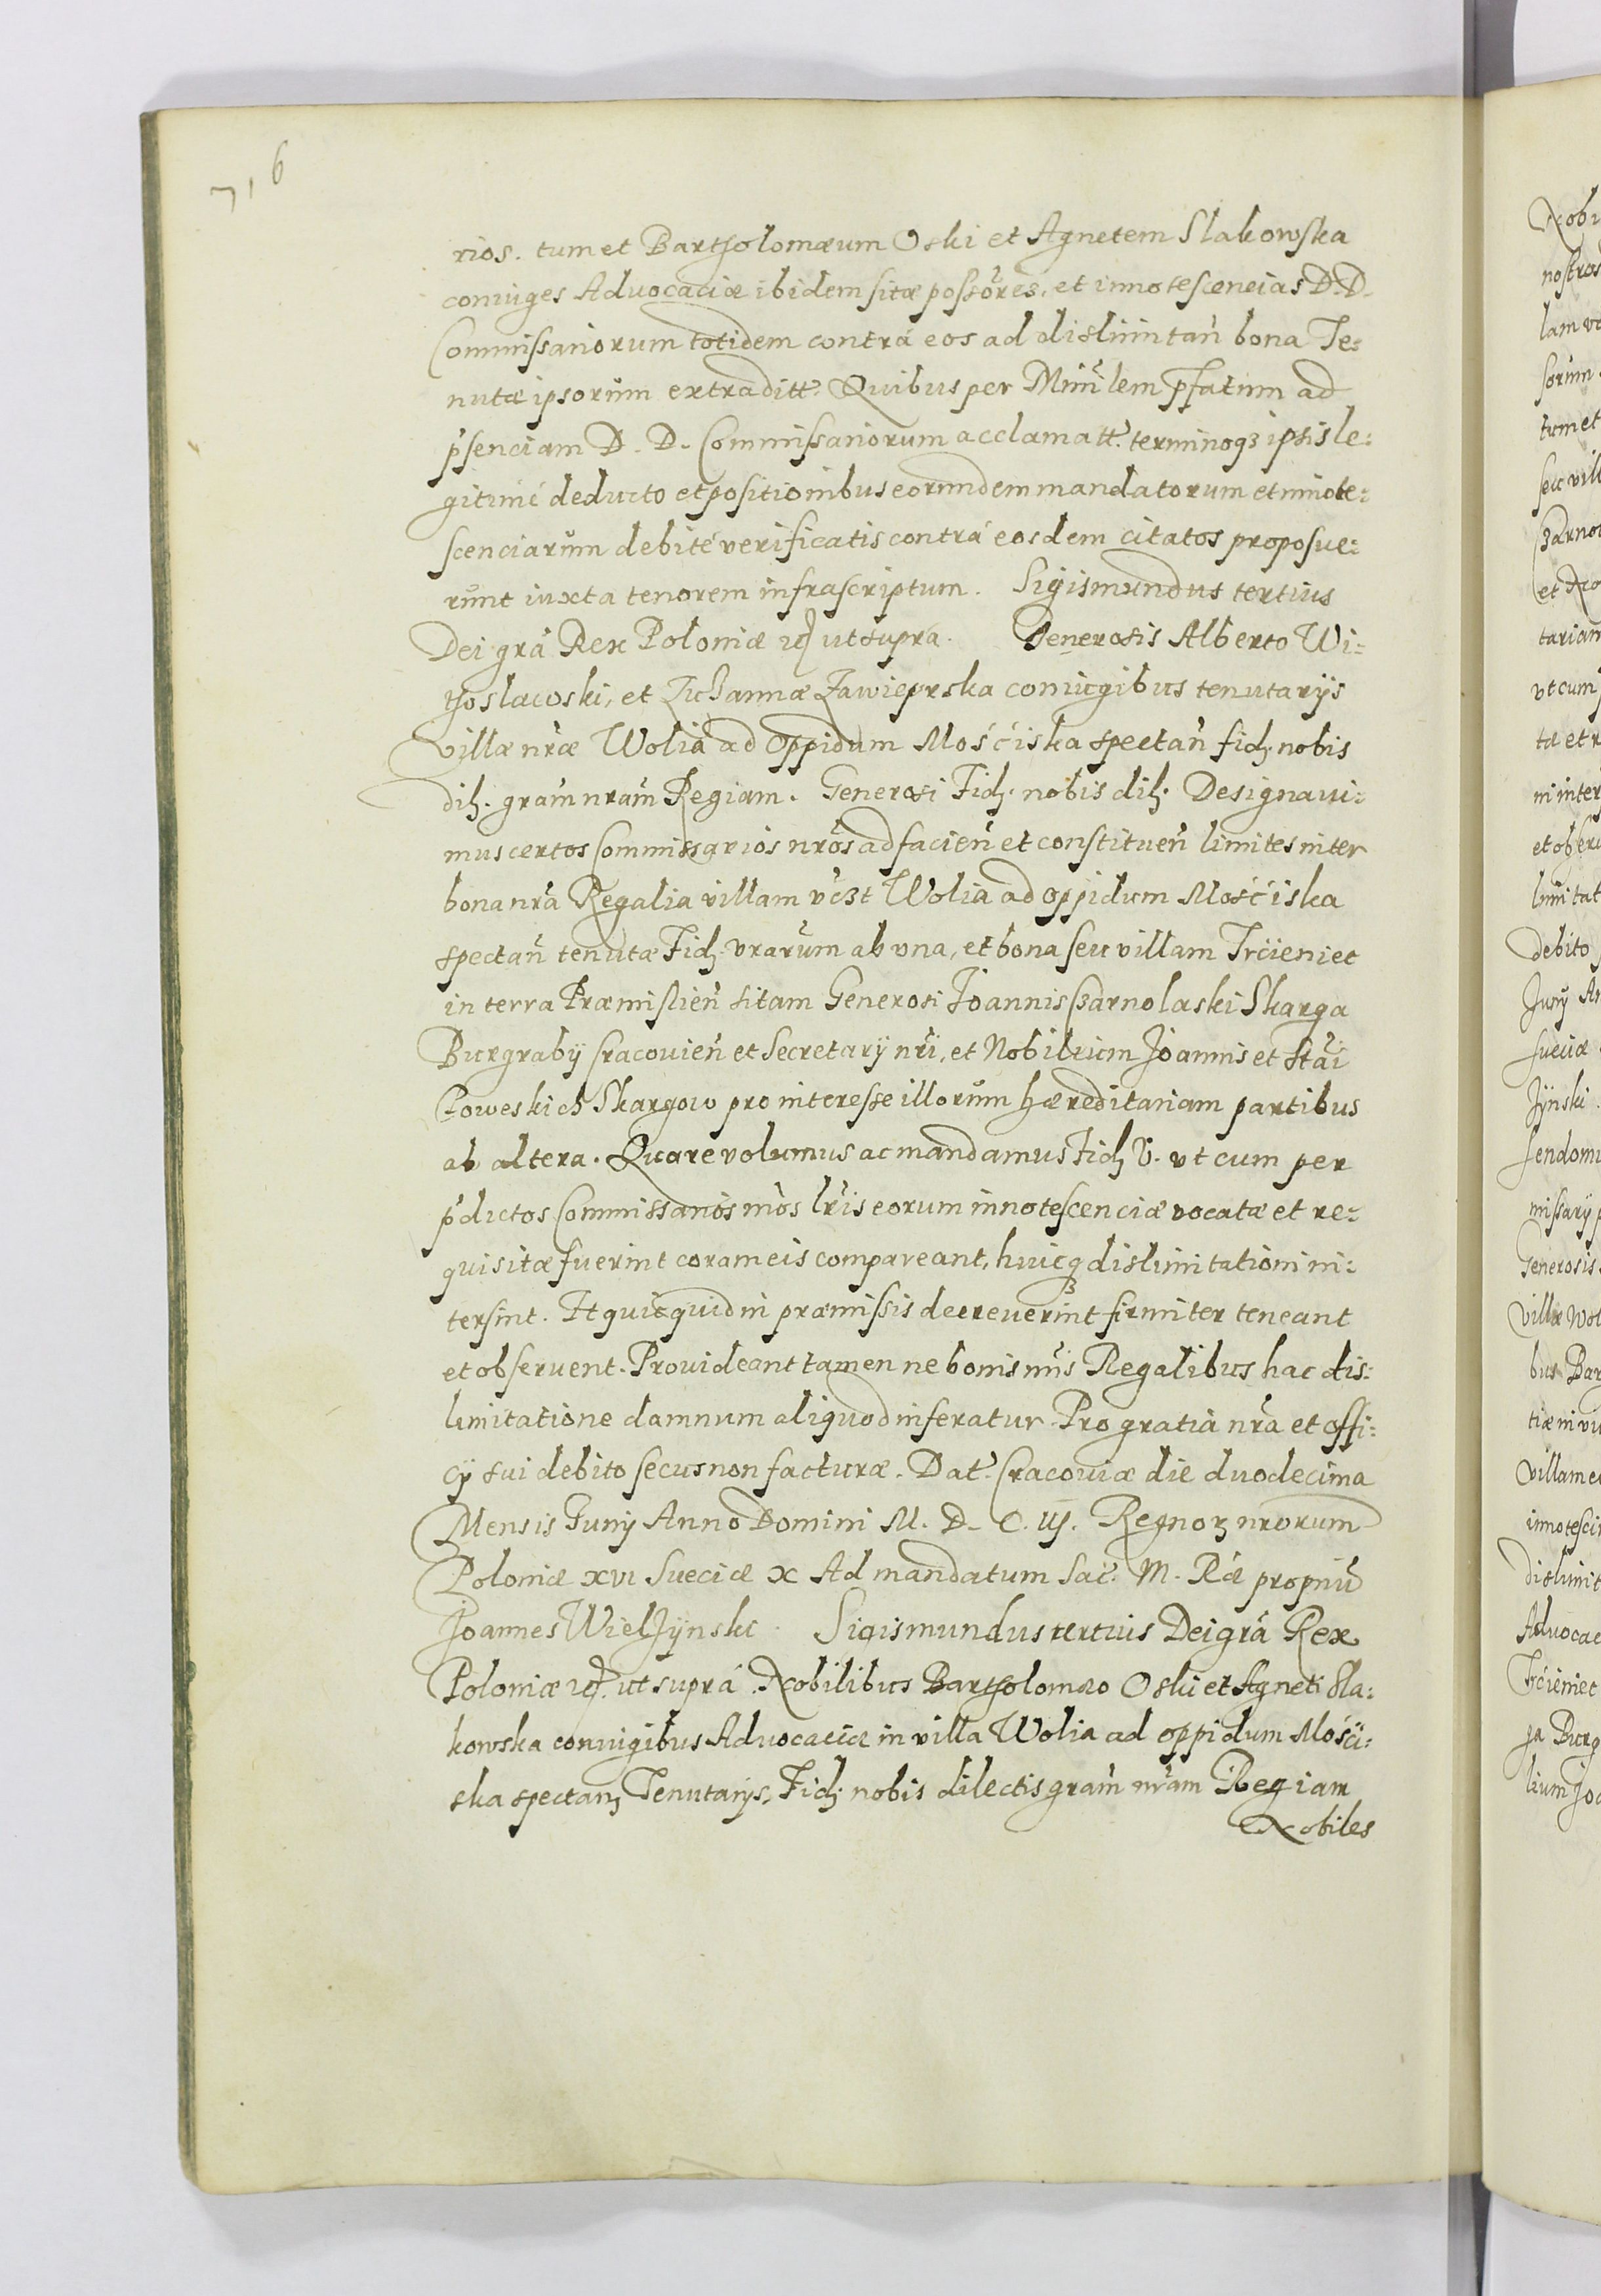 716
rios. tum et Bartholomæum Oski et Agnetem Slakowska
coniuges Advocaciæ ibidem sitæ possores, et innotescencias D. D.
Commissariorum totidem contrá eos ad dislimitan̄ bona Te:
nutæ ipsorum extraditt. Quibus per Minilem pfatum ad
p̄senciam D. D. Commissariorum acclamatt. terminoqȝ ipsis le:
gitimé deducto et positionibus eorundem mandatorum et innote:
scenciarum debité verificatis contrá eosdem citatos proposue:
runt iuxta tenorem infrascriptum. Sigismundus tertius
Dei grá Rex Poloniæ ut supra. Generosis Alberto Wi:
thoslawski, et Zuchannæ Zawieprska coniugibus tenutarÿs
villæ nr̄æ Wolia ad oppidum Mośćiska spectan̄ fid. nobis
dil. gram nram Regiam. Generosi Fid. nobis dil. Designaui:
mus certos Commissarios nros ad facien̄ et constituen̄ limites inter
bona nra Regalia villam vczt Wolia ad oppidum Mośćiska
spectan̄ tenutæ Fid. vrarum ab vna, et bona seu villam Trćieniec
in terra Præmislien̄ sitam Generosi Joannis Czarnolaski Skarga
Burgrabÿ Cracouien̄ et Secretarÿ nri, et Nobilium Joannis et Stai
Poweskich Skargow pro interesse illorum hæreditariam partibus
ab altera. Quare volumus ac mandamus Fid. V. vt cum per
p̄dictos Commissarios nros lris eorum innotescenciæ vocatæ et re:
quisitæ fuerint coram eis compareant, huicqȝ dislimitationi in:
tersint. Et quicquid in præmissis decreverint firmiter teneant
et observent. Provideant tamen ne bonis nris Regalibus hac dis:
limitatione damnum aliquod inferatur. Pro gratia nra et offi:
cÿ sui debito secus non facturæ. Dat. Cracoviæ die duodecima
Mensis Junÿ Anno Domini M. D. C. iij. Regnoȝ nrorum
Poloniæ xvi Sueciæ x Ad mandatum Sac. M. Ræ propriū
Joannes Wielżÿnski. Sigismundus tertius Dei grá Rex
Poloniæ ut suprá. Nobilibus Bartholomæo Oski et Agneti Sla:
kowska coniugibus Advocaciæ in villa Wolia ad oppidum Mośći:
ska spectan̄ Tenutarÿs, Fid. nobis dilectis gram nram Regiam
Nobiles